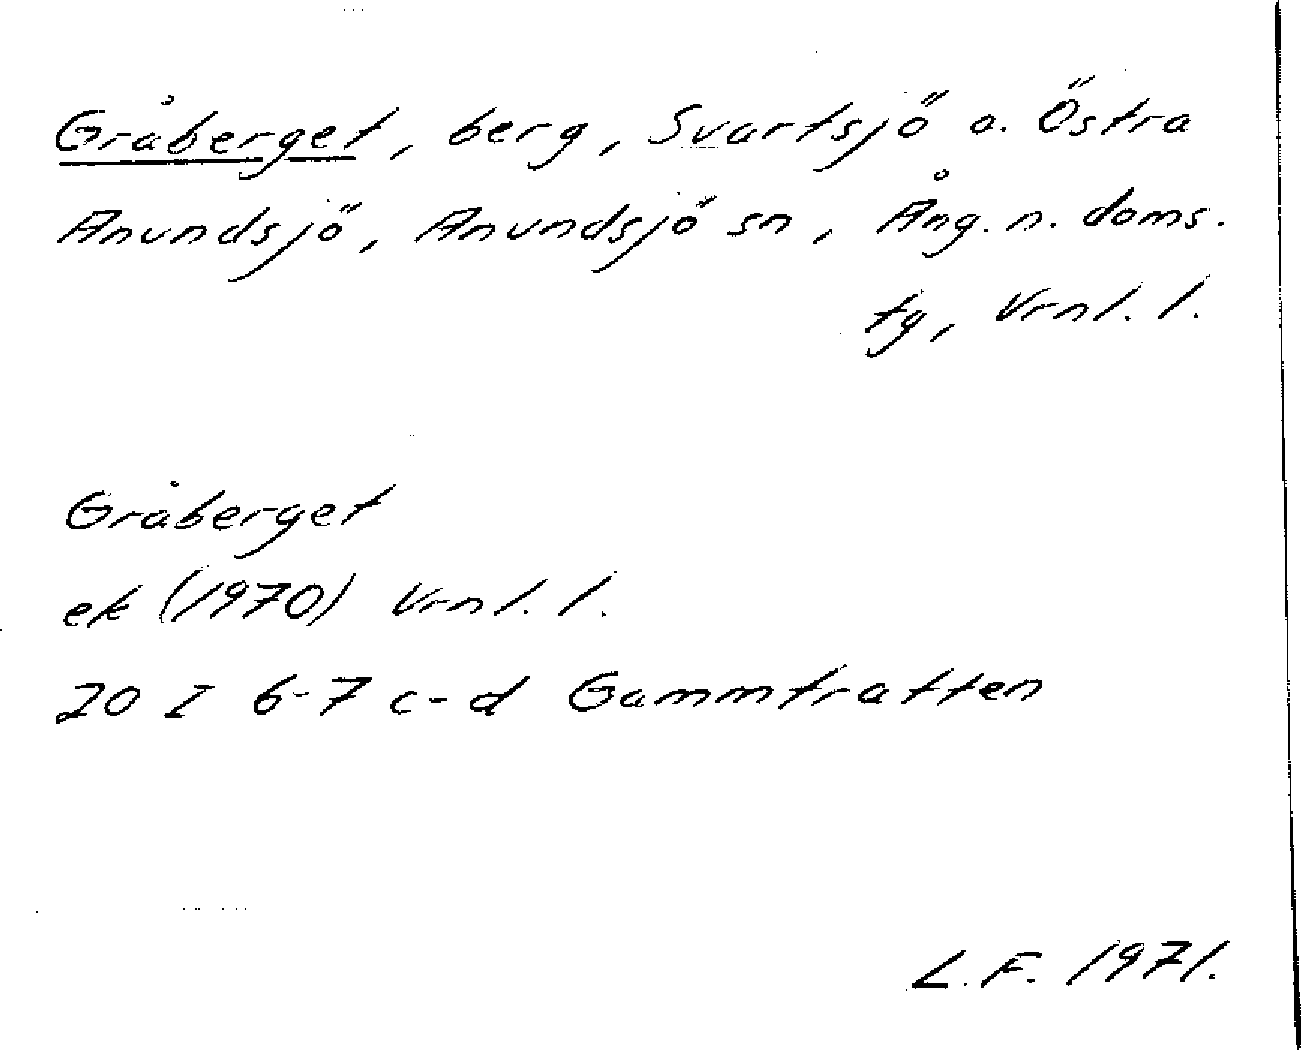 Gråberget, berg, Svartsjö o. Östra
Anundsjö, Anundsjö sn, Ång. n. doms.
tg, Vrnl. l.
Gråberget
ek (1970) Vrnl. l.
20 I 6-7 c-d Gammtratten
L.F. 1971.